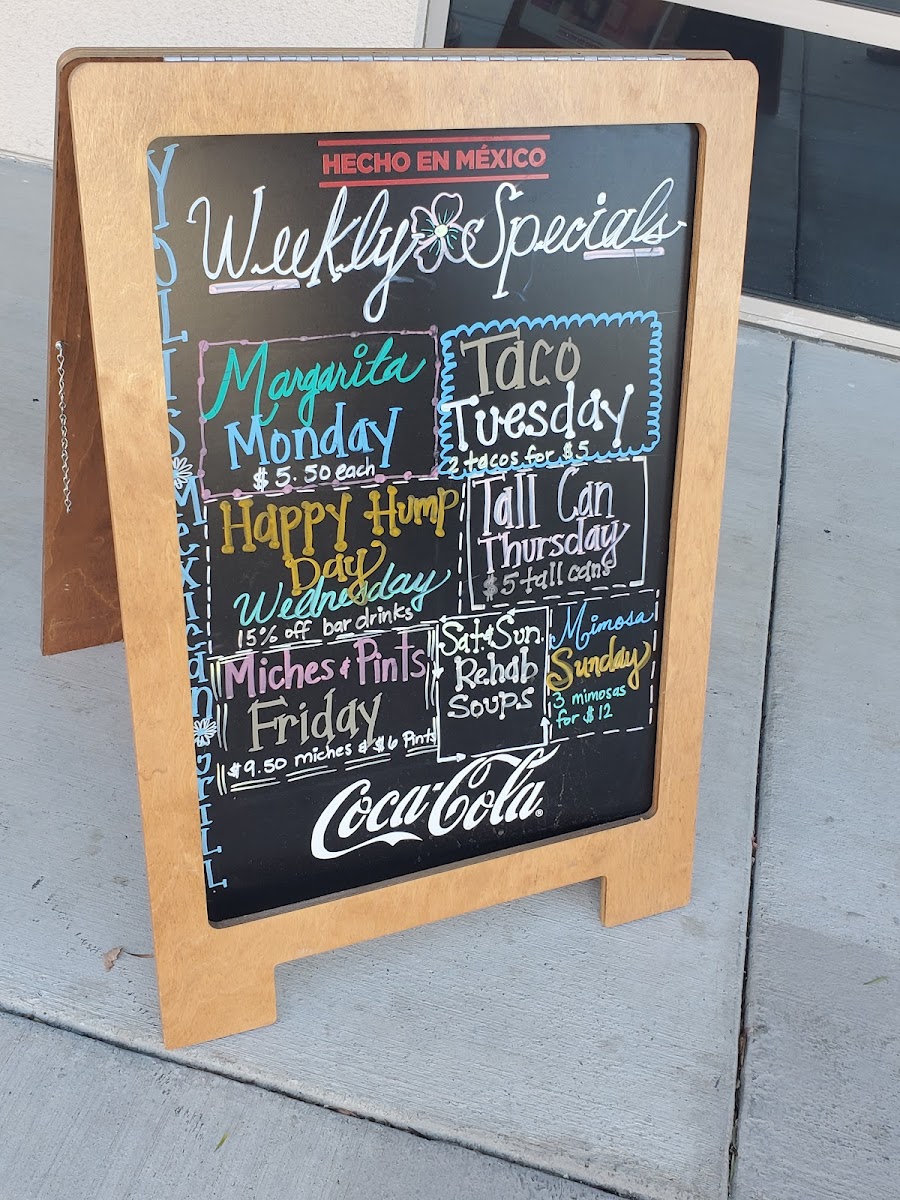 HECHO EN MÉXICO
Weekly Specials
YOLI'S Mexican Grill
Margarita
Monday
$5.50 each
Taco
Tuesday
2 tacos for $5
Happy Hump
Day
Wednesday
15% off bar drinks
Tall Can
Thursday
$5 tall cans
Miches & Pints
Friday
$9.50 miches & $6 Pints
Sat & Sun
Rehab
Soups
Mimosa
Sunday
3 mimosas
for $12
Coca-Cola®